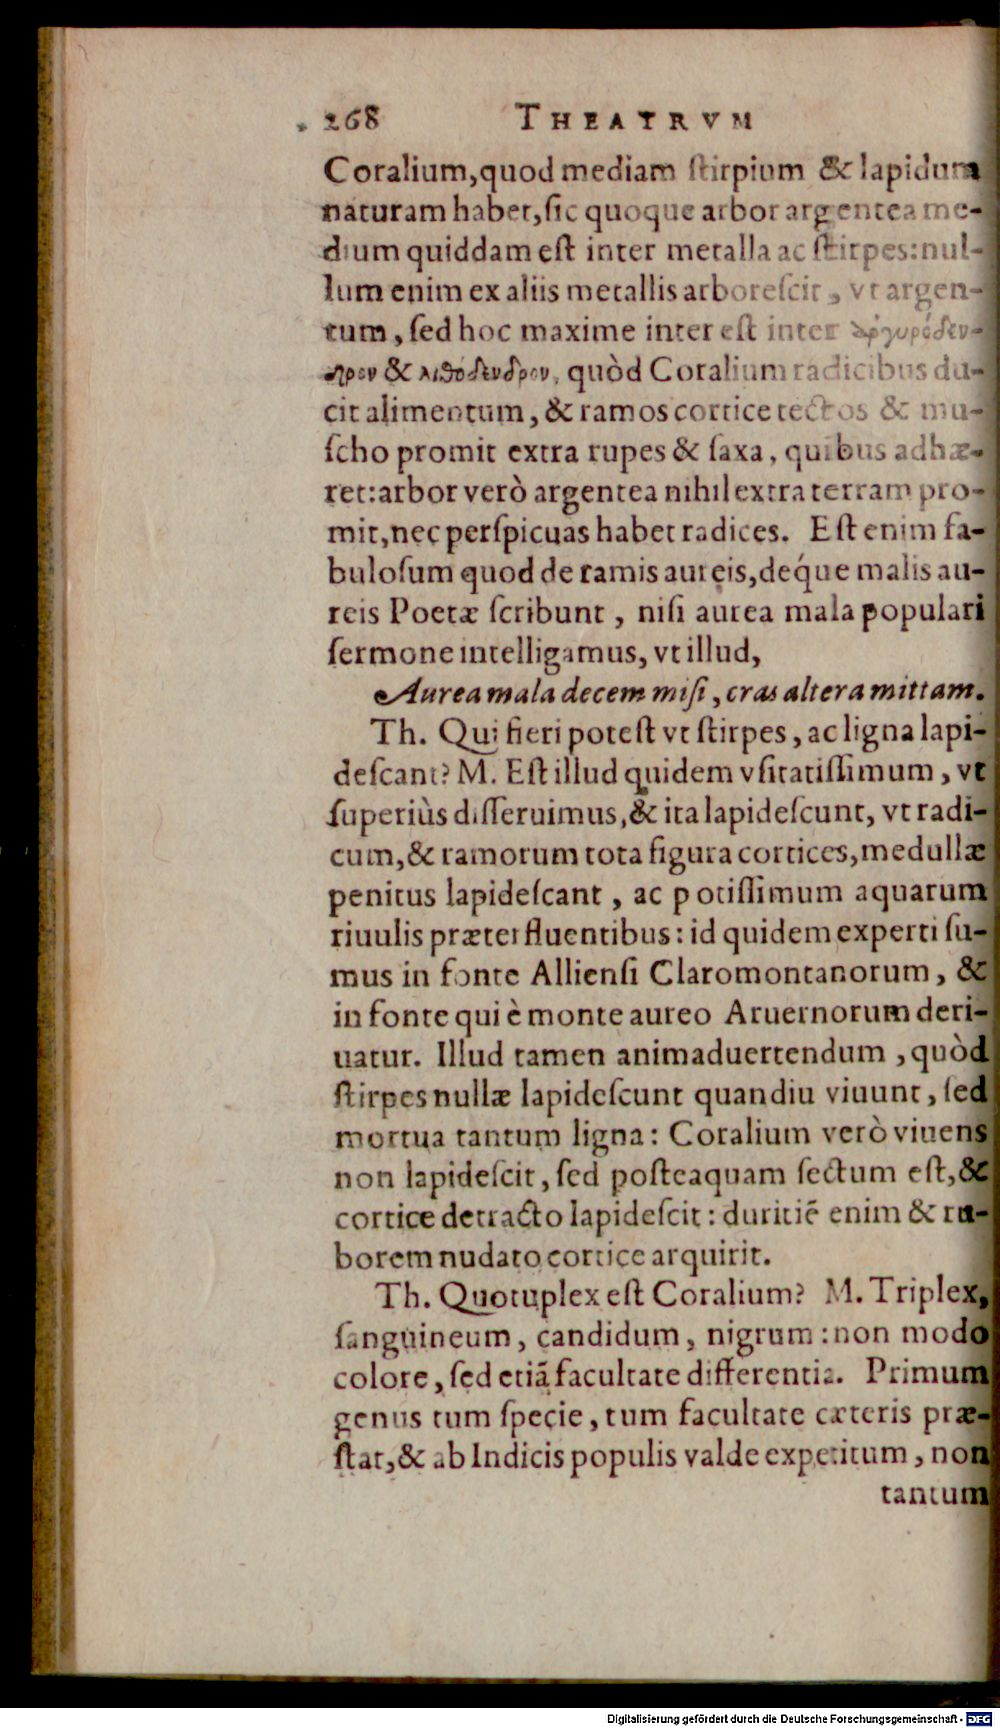 268 THEATRVM
Coralium, quod mediam ſtirpium & lapidum
naturam habet, ſic quoque arbor argentea me-
dium quiddam eſt inter metalla ac ſtirpes: nul-
lum enim ex aliis metallis arboreſcit, vt argen-
tum, ſed hoc maxime intereſt inter ἀργυρόδεν-
δρον & λιθόδενδρον, quòd Coralium radicibus du-
cit alimentum, & ramos cortice tectos & mu-
ſcho promit extra rupes & ſaxa, quibus adhæ-
ret: arbor verò argentea nihil extra terram pro-
mit, nec perſpicuas habet radices. Eſt enim fa-
buloſum quod de ramis aureis, deque malis au-
reis Poetæ ſcribunt, niſi aurea mala populari
ſermone intelligamus, vt illud,
Aurea mala decem miſi, cras altera mittam.
Th. Qui fieri poteſt vt ſtirpes, ac ligna lapi-
deſcant? M. Eſt illud quidem vſitatiſſimum, vt
ſuperiùs diſſeruimus, & ita lapideſcunt, vt radi-
cum, & ramorum tota figura cortices, medullæ
penitus lapideſcant, ac potiſſimum aquarum
riuulis præterfluentibus: id quidem experti ſu-
mus in fonte Allienſi Claromontanorum, &
in fonte qui è monte aureo Aruernorum deri-
uatur. Illud tamen animaduertendum, quòd
ſtirpes nullæ lapideſcunt quandiu viuunt, ſed
mortua tantum ligna: Coralium verò viuens
non lapideſcit, ſed poſteaquam ſectum eſt, &
cortice detracto lapideſcit: duritiē enim & ru-
borem nudato cortice arquirit.
Th. Quotuplex eſt Coralium? M. Triplex,
ſanguineum, candidum, nigrum: non modo
colore, ſed etiā facultate differentia. Primum
genus tum ſpecie, tum facultate cæteris præ-
ſtat, & ab Indicis populis valde expetitum, non
tantum
Digitalisierung gefördert durch die Deutsche Forschungsgemeinschaft - DFG